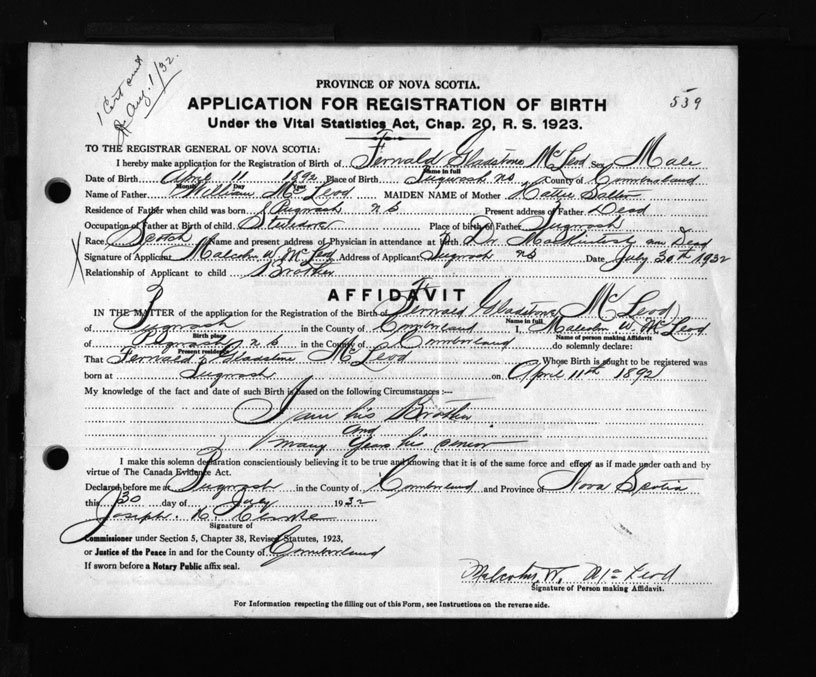 1 Cert sent
Aug. 1/32.
539
PROVINCE OF NOVA SCOTIA.
APPLICATION FOR REGISTRATION OF BIRTH
Under the Vital Statistics Act, Chap. 20, R. S. 1923.
TO THE REGISTRAR GENERAL OF NOVA SCOTIA:
I hereby make application for the Registration of Birth of Fernald Gladstone McLeod Sex Male
Name in full
Date of Birth April 11 1892 Place of Birth Pugwash NS County of Cumberland
Month Day Year
Name of Father William McLeod MAIDEN NAME of Mother Hattie
Residence of Father when child was born Pugwash N S Present address of Father Dead
Occupation of Father at Birth of child Place of birth of Father Pugwash
Race Scotch Name and present address of Physician in attendance at Birth Dr. Mackintosh am Dead
Signature of Applicant Malcolm W. McLeod Address of Applicant Pugwash NS Date July 30th 1932
Relationship of Applicant to child Brother
AFFIDAVIT
IN THE MATTER of the application for the Registration of the Birth of Fernald Gladstone McLeod
Name in full
of Pugwash in the County of Cumberland I, Malcolm W. McLeod
Birth place Name of person making Affidavit
of Pugwash N S in the County of Cumberland do solemnly declare:
Present residence
That Fernald Gladstone McLeod Whose Birth is sought to be registered was
born at Pugwash on April 11th 1892
My knowledge of the fact and date of such Birth is based on the following Circumstances:—
I am his Brother
and
many years his senior
I make this solemn declaration conscientiously believing it to be true and knowing that it is of the same force and effect as if made under oath and by
virtue of The Canada Evidence Act.
Declared before me at Pugwash in the County of Cumberland and Province of Nova Scotia
this 30 day of July 1932
Joseph
Signature of
Commissioner under Section 5, Chapter 38, Revised Statutes, 1923,
or Justice of the Peace in and for the County of Cumberland
If sworn before a Notary Public affix seal.
Malcolm W. McLeod
Signature of Person making Affidavit.
For Information respecting the filling out of this Form, see Instructions on the reverse side.